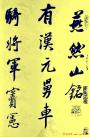 燕然山銘
有漢元舅車
騎將軍竇憲